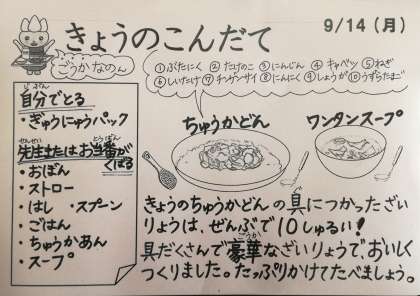 きょうのこんだて
9/14（月）
ごうかなのん
①ぶたにく ②たけのこ ③にんじん ④キャベツ ⑤ねぎ
⑥しいたけ ⑦チンゲンサイ ⑧にんにく ⑨しょうが ⑩うずらたまご
自分でとる
じぶん
・ぎゅうにゅうパック
せんせい とうばん
先生またはお当番が
くばる
・おぼん
・ストロー
・はし ・スプーン
・ごはん
・ちゅうかあん
・スープ
ちゅうかどん
ワンタンスープ
きょうのちゅうかどんの具につかったざい
りょうは、ぜんぶで10しゅるい！
具だくさんで豪華なざいりょうで、おいしく
つくりました。たっぷりかけてたべましょう。